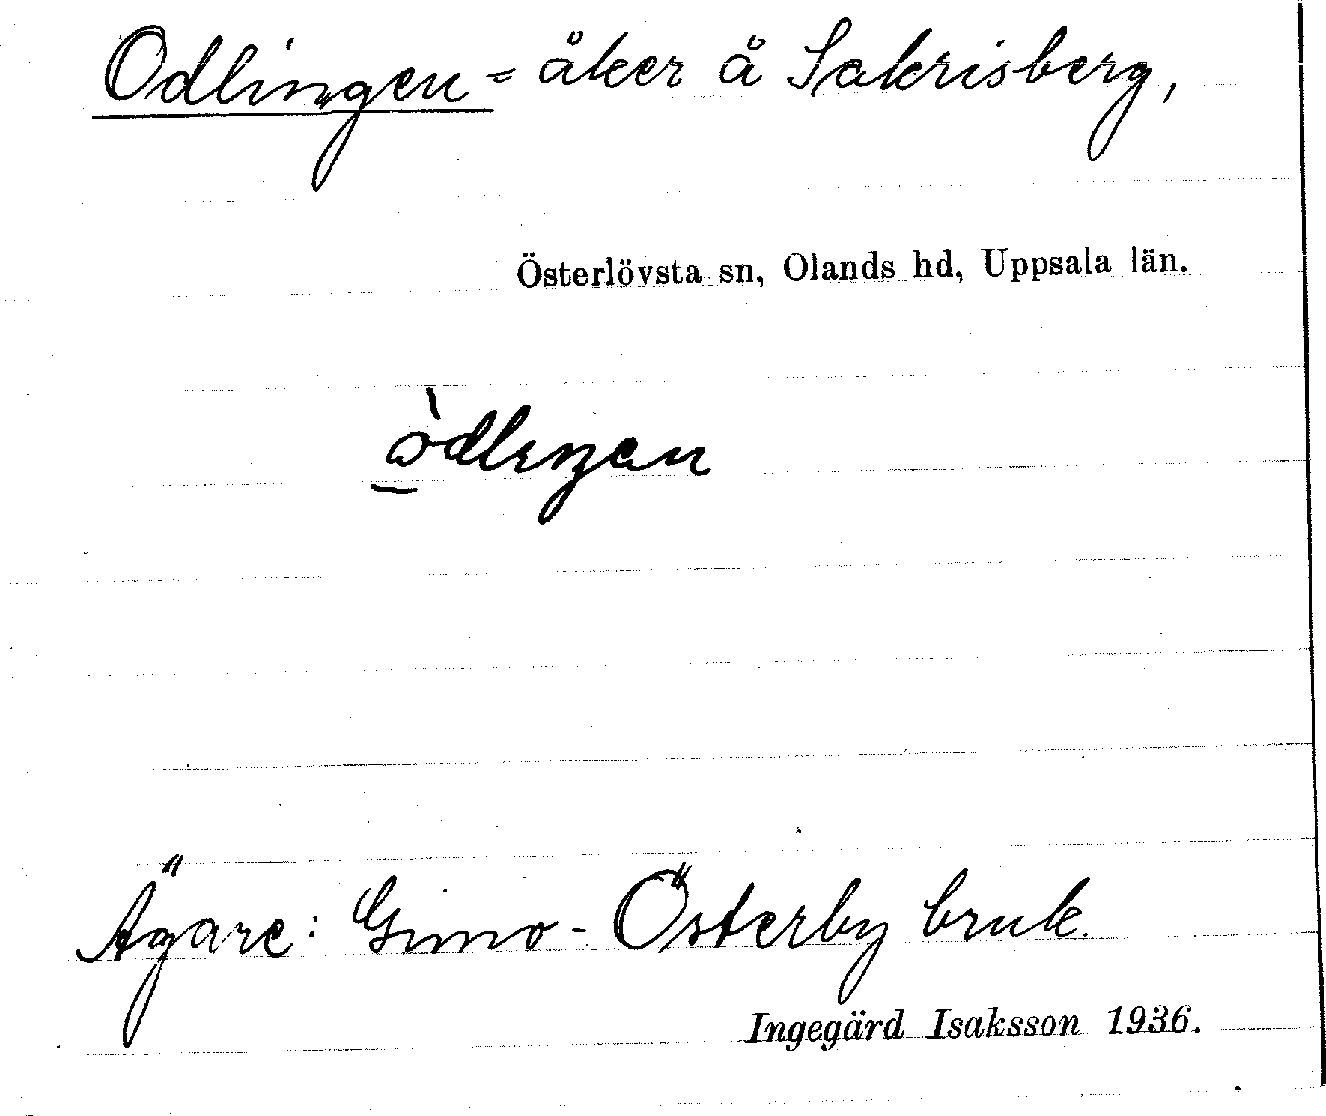 Odlingen = åker å Sakrisberg,
Österlövsta sn, Olands hd, Uppsala län.
Ägare: Gimo-Österby bruk.
Ingegärd Isaksson 1936.